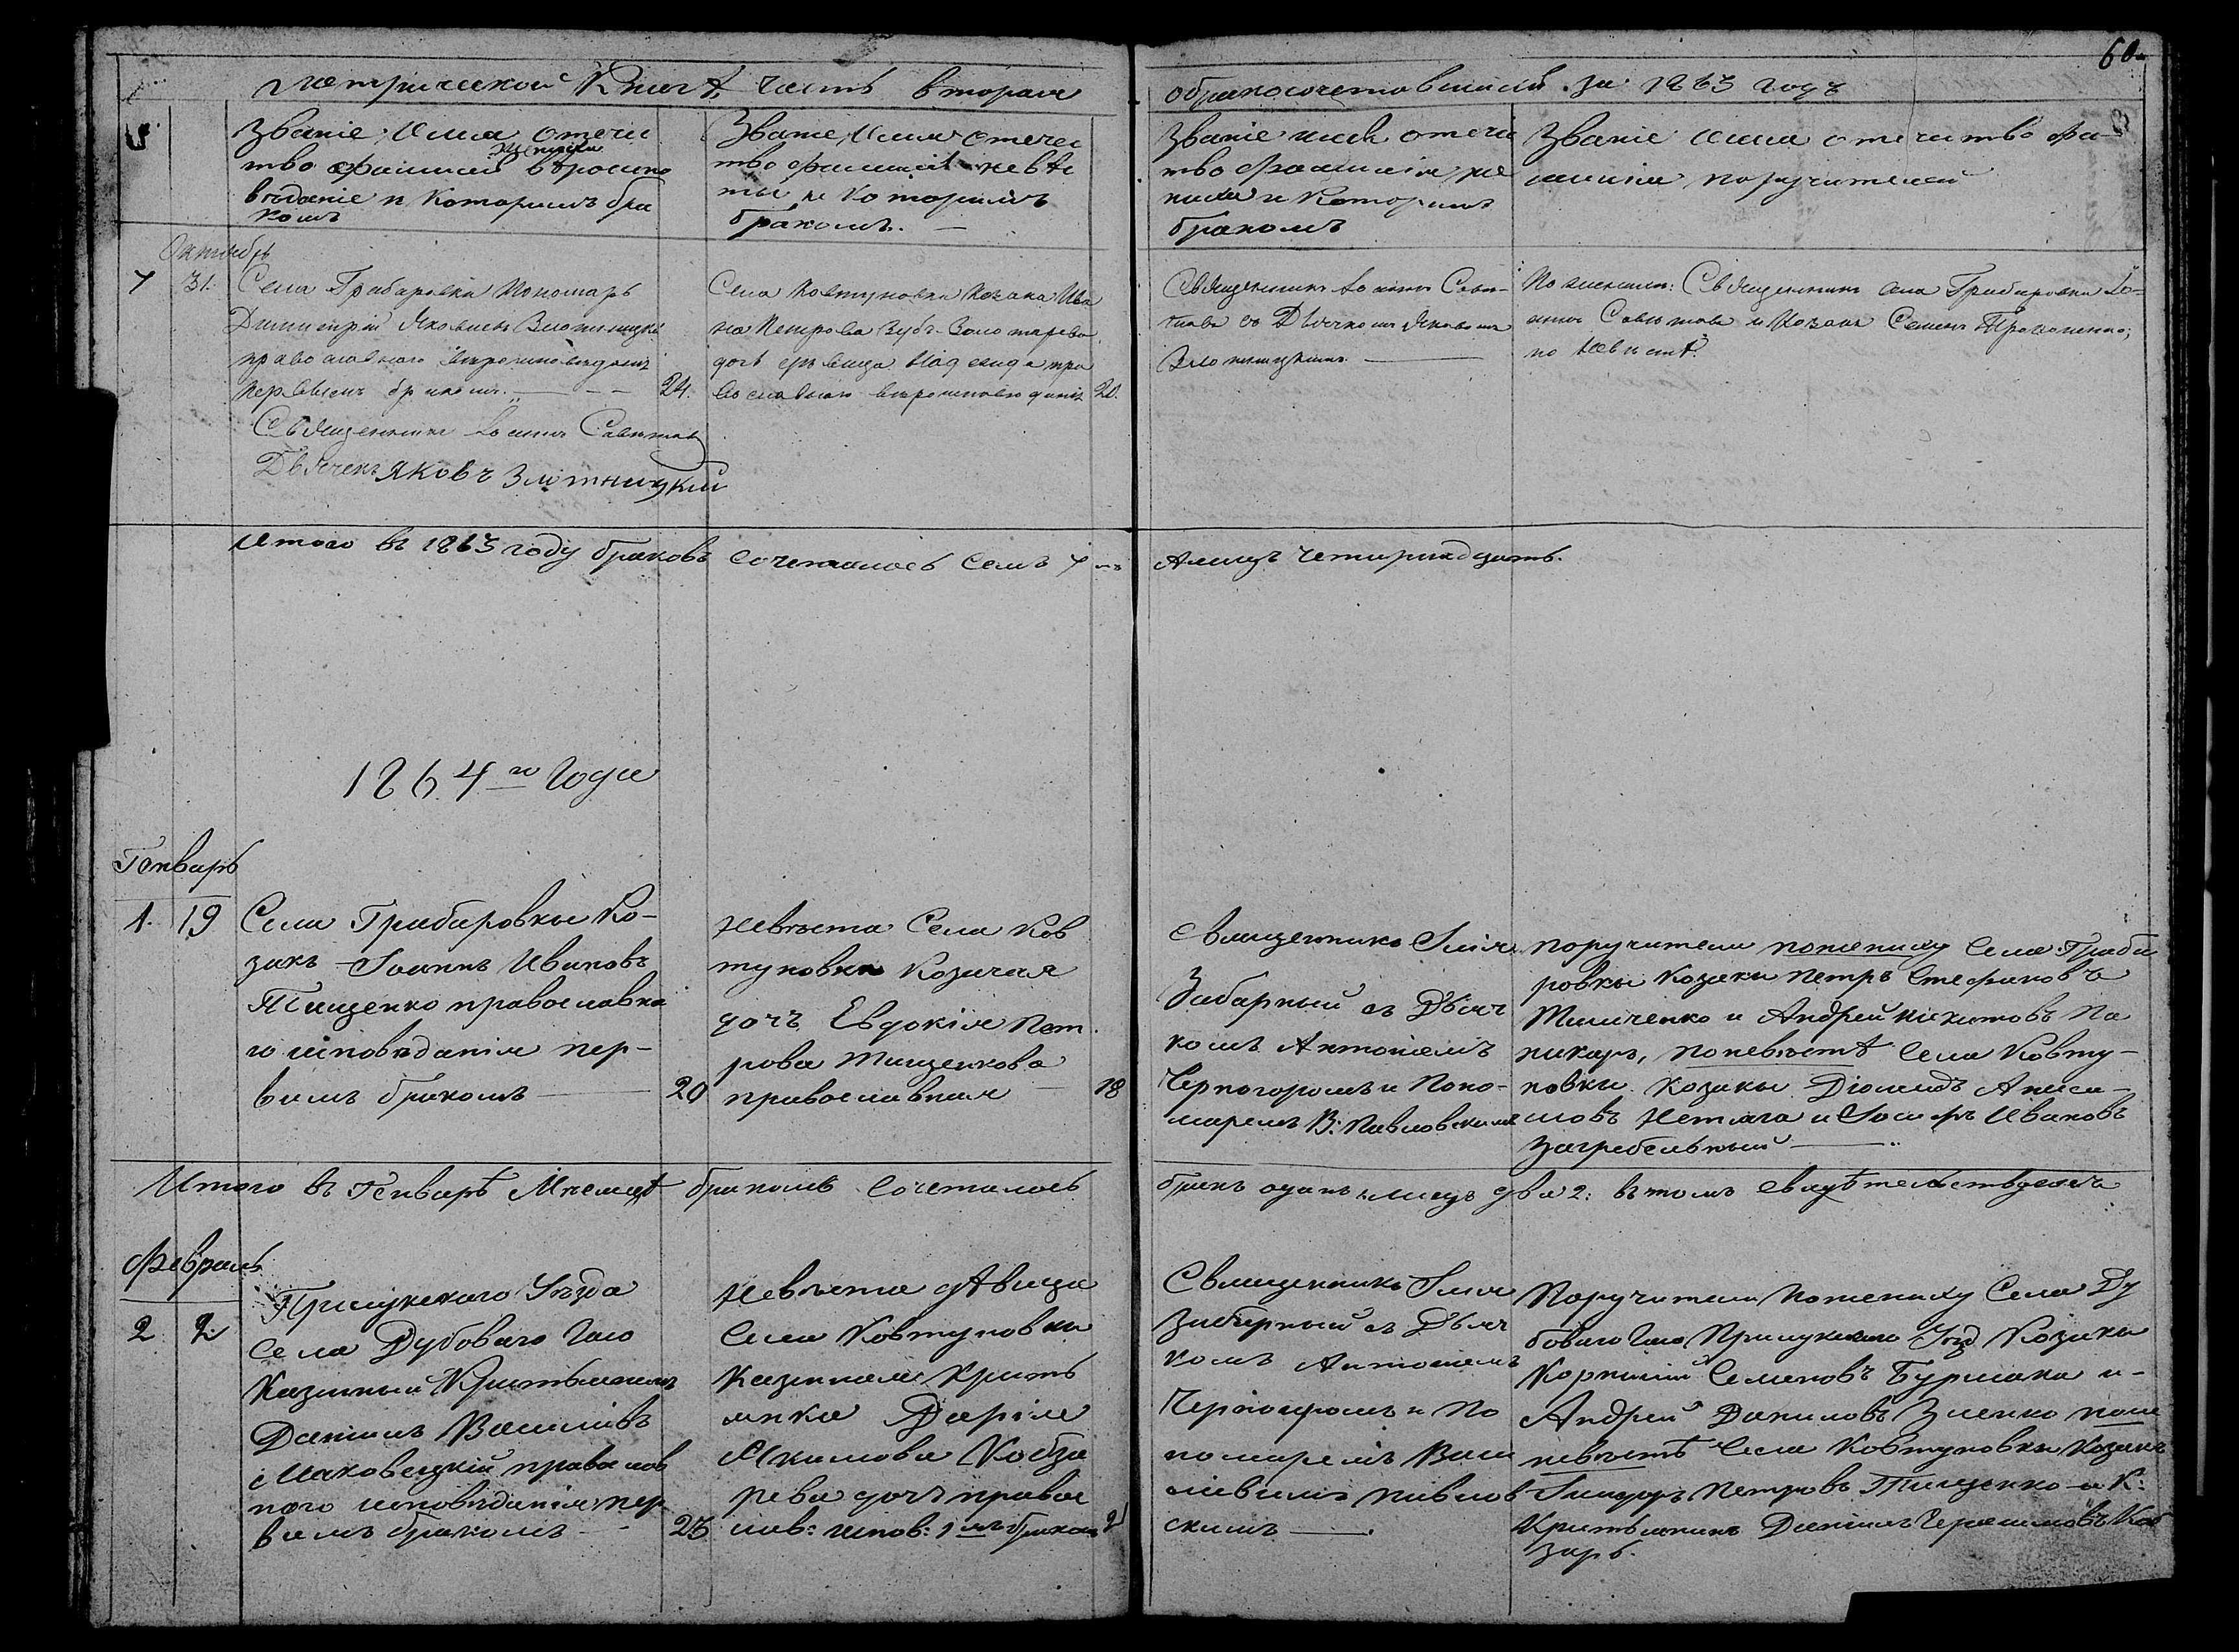 60
Метрической Книгѣ, часть вторая
о бракосочетавшихся за 1863 годъ
Званіе, Имя, отечес
тво фамилія жениха вѣроиспо
вѣданіе и Которимъ бра
комъ
Званіе, Имя, отечес
тво фамилія невѣс
ты, и которимъ
бракомъ. —
Званіе имя отечес
тво фамилія
и Которимъ
бракомъ
Званіе имя отечество фа-
милія поручителей
Октябрь
7 31. Села Грабаровки Пономарь
Димитрій Яковлевъ Злотницкій
православного вѣроисповеданія
первымъ бракомъ. — 24.
Священникъ Іоаннъ
Дьячекъ Яковъ Злотницкій
Села Ковтуновки Козака Ива
на Петрова Зубъ-Золотарева
дочь дѣвица пра
вославного вѣроисповеданія 20.
Священникъ Іоаннъ
съ Дьячкомъ Яковомъ
Злотницкимъ. —
По женихѣ: Священникъ села Грабаровки Іо-
аннъ и Козакъ Семенъ
по невѣстѣ.
Итого въ 1863 году браковъ сочеталось Семъ 7
А лицъ четирнадцать.
1864го Года
Генварь
1. 19 Села Грабаровки Ко-
закъ Іоаннъ Ивановъ
Тищенко православна
го исповѣданія пер-
вимъ бракомъ — 20
Невѣста Села Ков
туновки Козачая
дочь Евдокія Пет
рова Тищенкова
православная — 18
Священникъ Іліа
Забарный съ Дьяч
комъ Антоніемъ
Черногоромъ и Поно-
маремъ В: Павловскимъ
Поручители по жениху Села Граба
ровки Козаки Петръ Стефановъ
и Андрей Никитовъ По
никаръ, по невѣстѣ Села Ковту-
новки Козаки Діомидъ Аниси-
мовъ Нетяга и Іосифъ Ивановъ
Загребельный —
Итого въ Генварѣ Месяцѣ бракомъ Сочеталось
бракъ одинъ, лицъ два 2: въ томъ свидѣтельствуемъ
Февраль
2 2 Прилукскаго Уѣзда
Села Дубоваго Гаю
Казенный Крестьянинъ
Даніилъ Василіевъ
Маковецкій православ
ного исповѣданія пер
вимъ бракомъ — 25
Невѣста дѣвица
Села Ковтуновки
Казенная Кресть
янка Дарія
Акимова Кобза
рева дочь право
слав: испов: 1мъ бракомъ 21
Священникъ Іліа
Забарный съ Дьяч
комъ Антоніемъ
Черногоромъ и По
номаремъ Васи
ліемъ Павлов
скимъ —
Поручители по жениху Села Ду
боваго Гаю Прилукскаго Уѣзд Козаки
Корнилій Семеновъ Бурлака и-
Андрей Даниловъ Зленко по
невѣстѣ Села Ковтуновки Козакъ
Петровъ Тищенко и К:
Крестьянинъ Даніилъ Герасимовъ Коб
зарь.